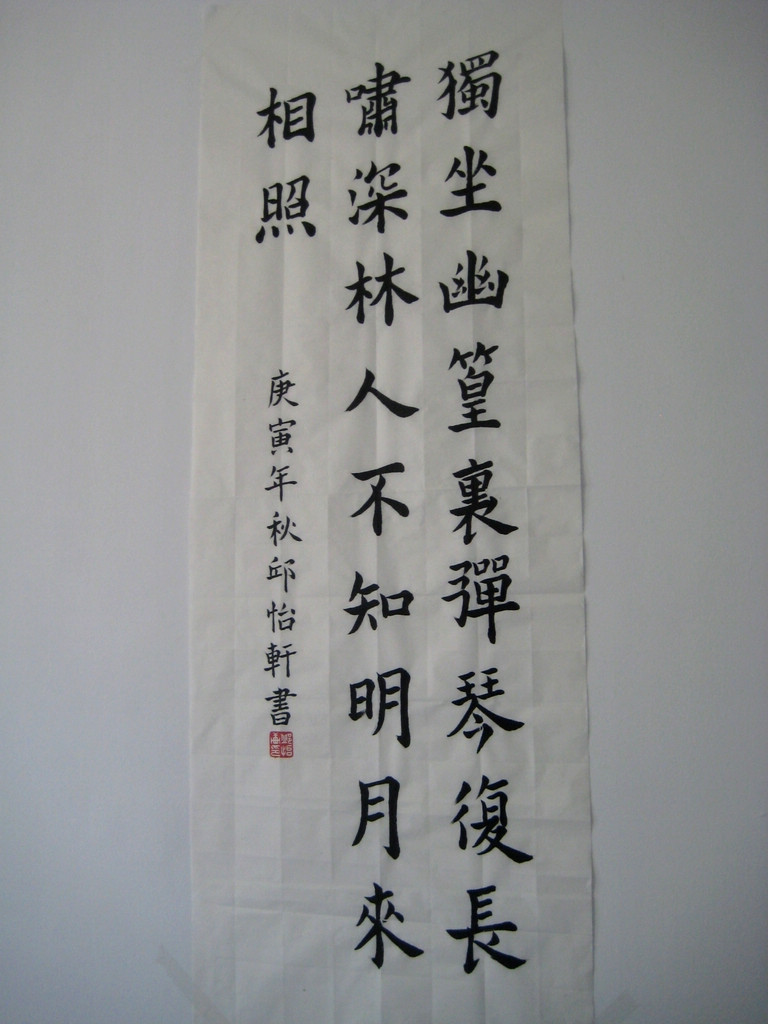 獨坐幽篁裏彈琴復長
嘯深林人不知明月來
相照
庚寅年秋邱怡軒書